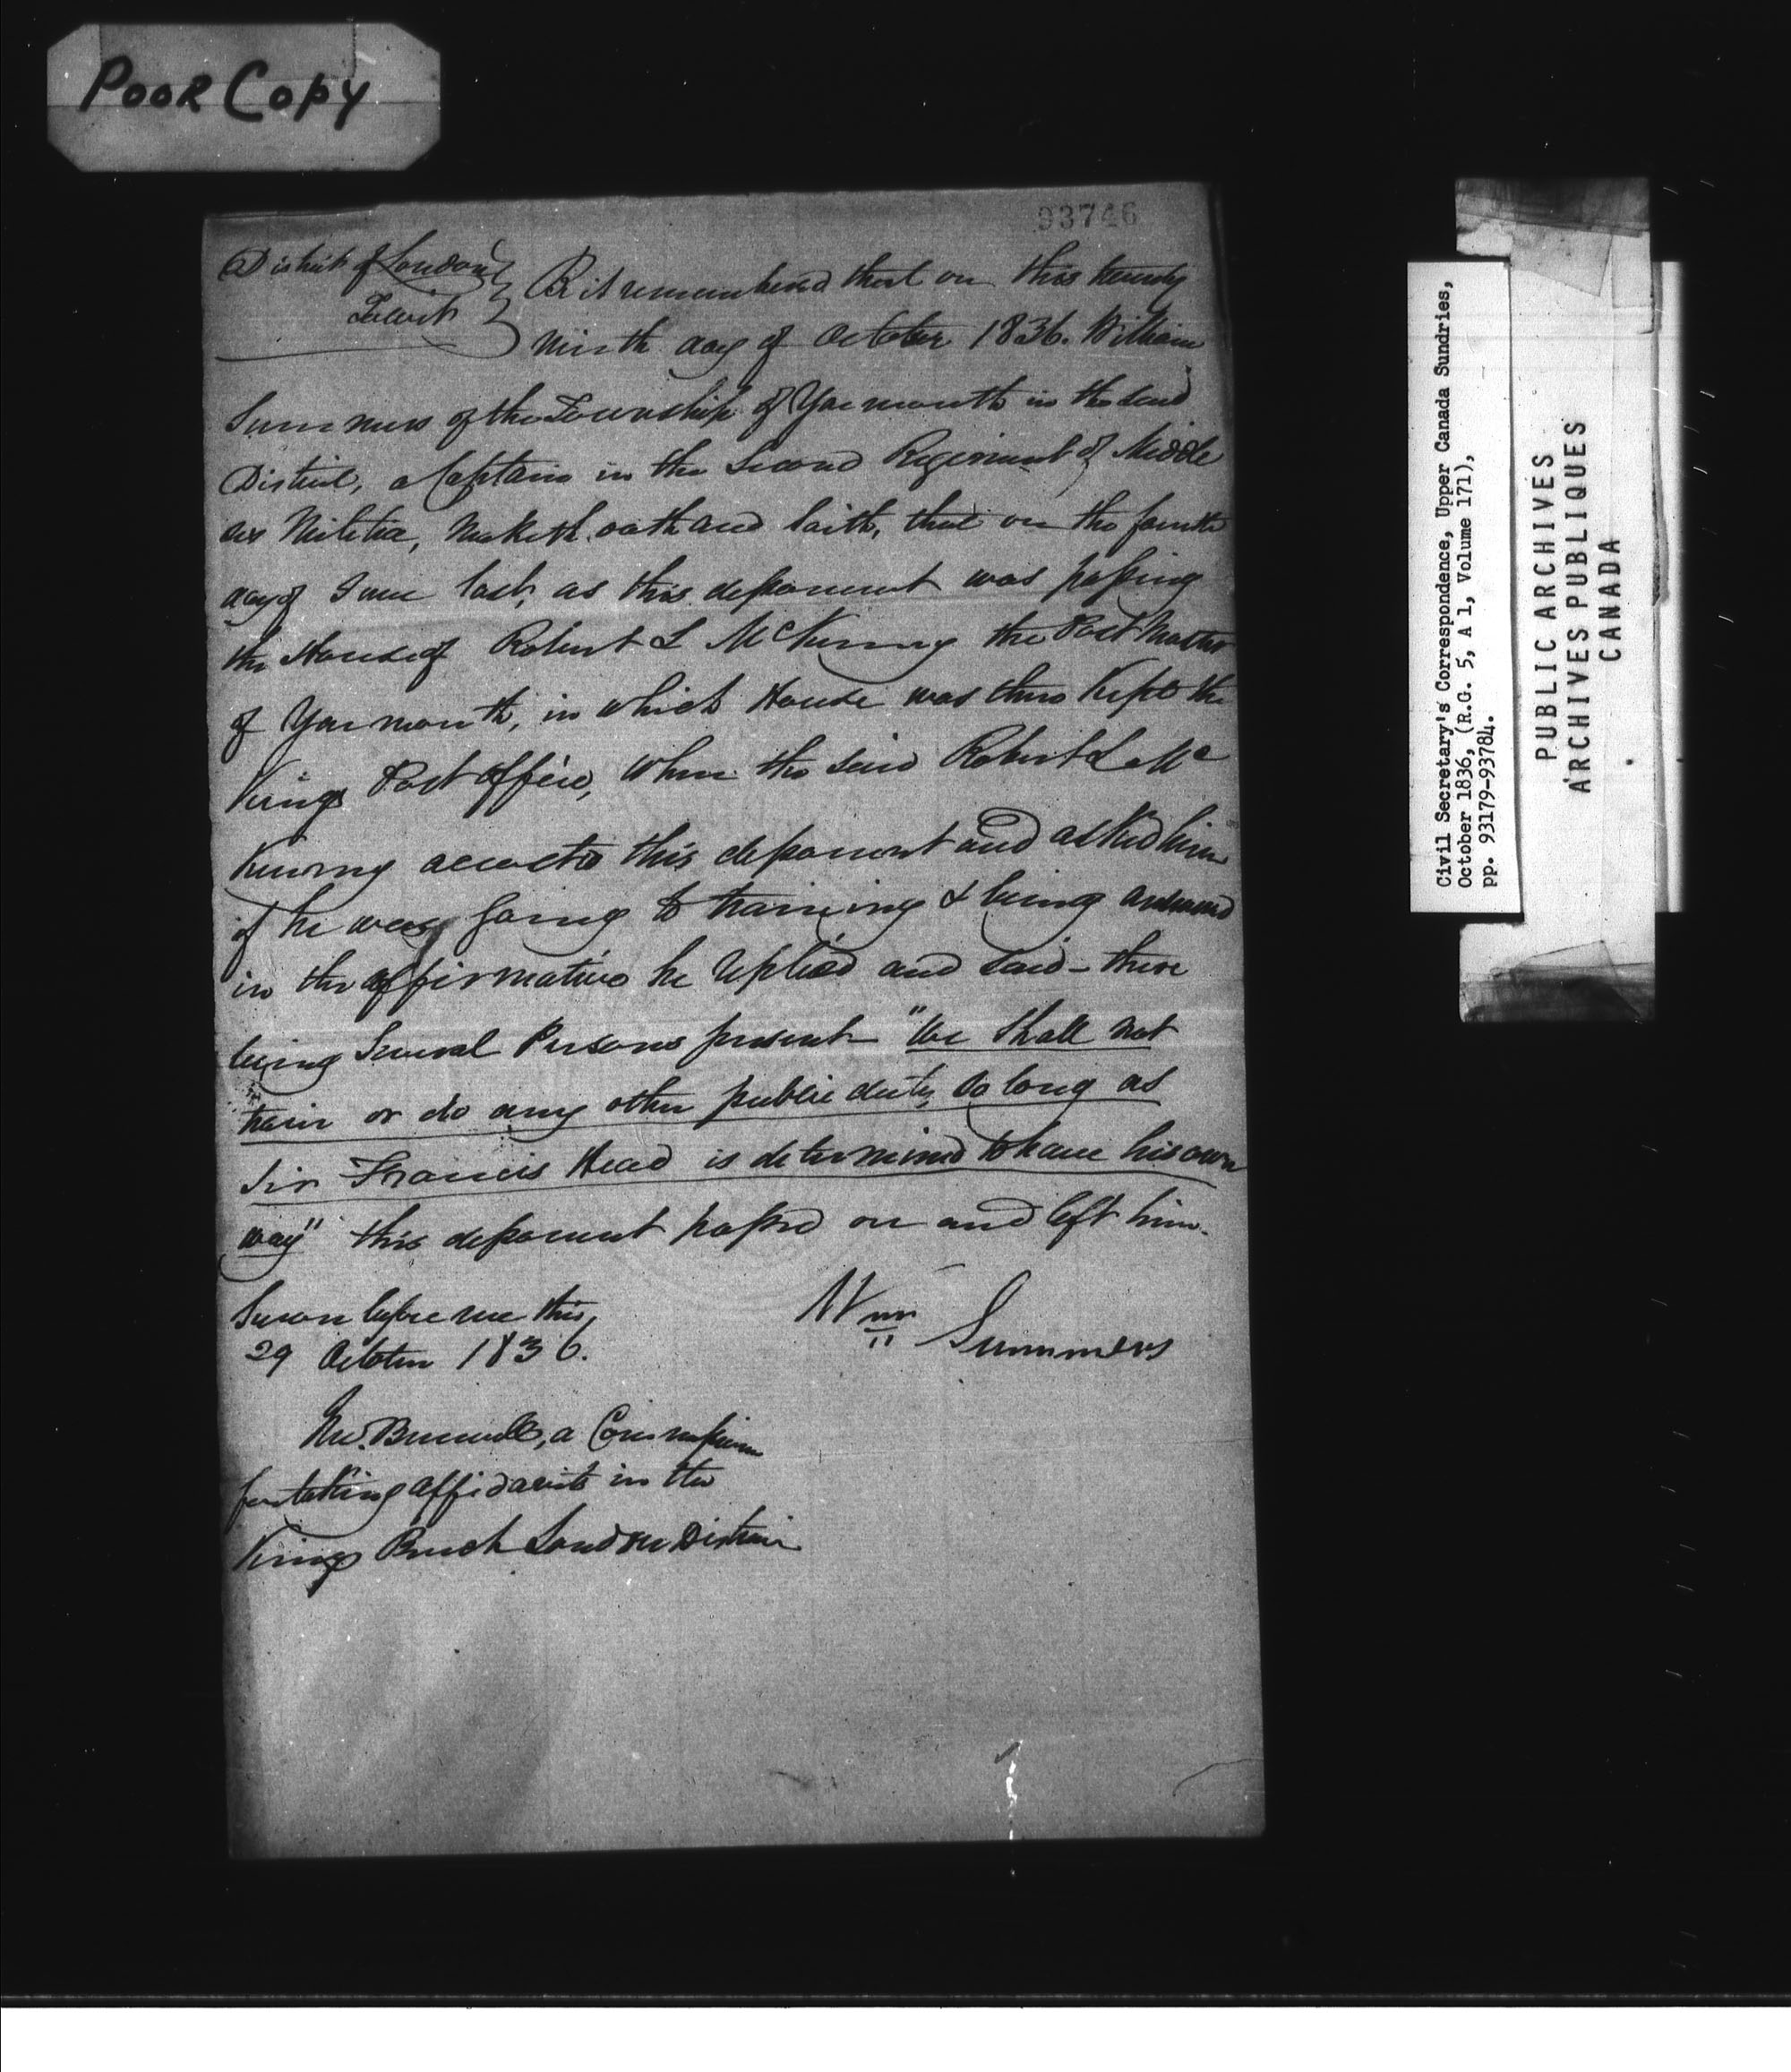 Poor Copy
93746
District of London
To wit
Be it remembered that on this twenty
ninth day of October 1836. William
Summers of the Township of Yarmouth in the said
District, a Captain in the Second Regiment of Middle
sex Militia, maketh oath and saith, that on the fourth
day of June last, as this deponent was passing
the House of Robert L McKenny the Post Master
of Yarmouth, in which House was then Kept the
Kings Post Office, when the said Robert L Mc
Kenny accosted this deponent and asked him
if he was going to training & being answered
in the affirmative he replied and said – there
being Several Persons present – "We shall not
train or do any other public duty, so long as
Sir Francis Head is determined to have his own
way" this deponent passed on and left him.
Sworn before me this
29 October 1836.
Wm Summers
Burwell, a Commissioner
for taking affidavits in the
Kings Bench London District
Civil Secretary's Correspondence, Upper Canada Sundries,
October 1836, (R.G. 5, A 1, Volume 171),
pp. 93179-93784.
PUBLIC ARCHIVES
ARCHIVES PUBLIQUES
CANADA